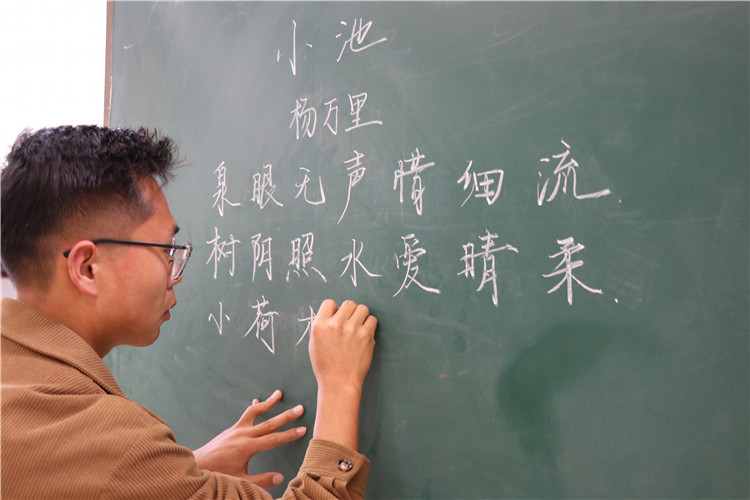 小池
杨万里
泉眼无声惜细流.
树阴照水爱晴柔.
小荷